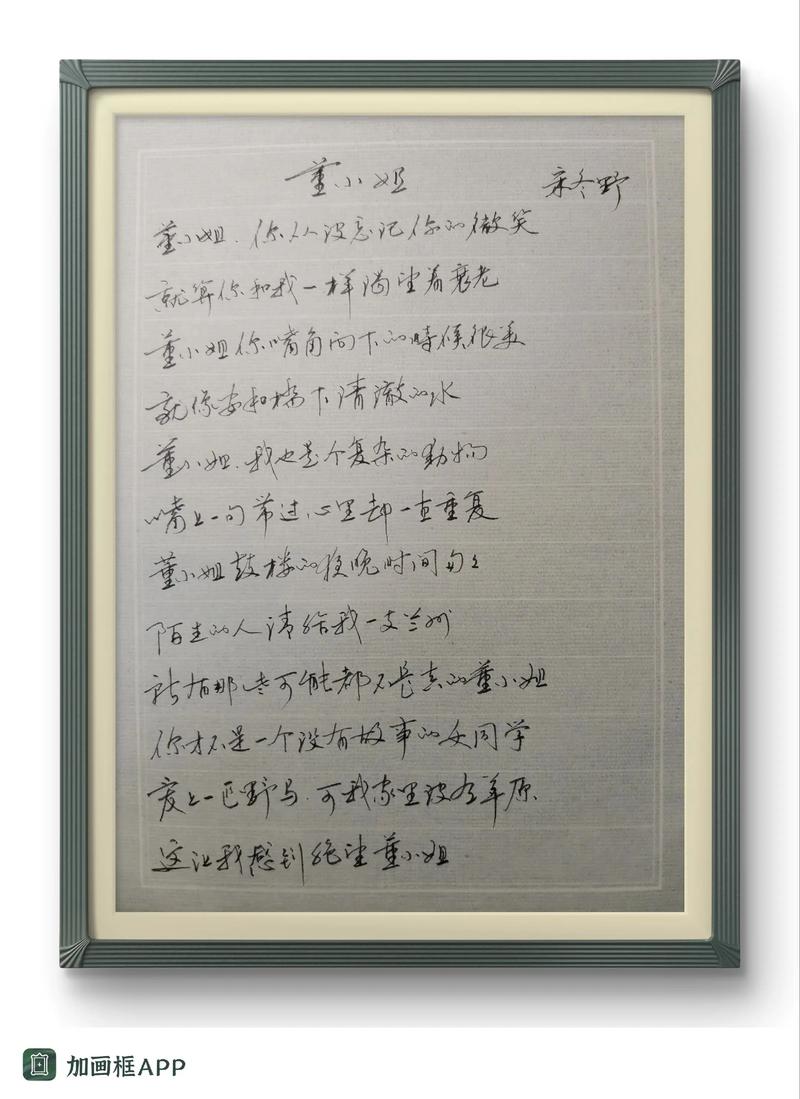 董小姐 宋冬野
董小姐.你从没忘记你的微笑
就算你和我一样渴望着衰老
董小姐你嘴角向下的時候很美
就像安和桥下清澈的水
董小姐.我也是个复杂的動物
嘴上一句带过心里却一直重复
董小姐鼓楼的夜晚时间匆匆
陌生的人请给我一支兰州
所有那些可能都不是真的董小姐
你才不是一个没有故事的女同学
爱上一匹野马.可我家里没有草原.
这让我感到绝望董小姐
加画框APP